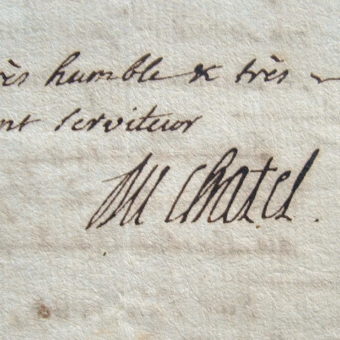 ès humble & très
nt serviteur
Du Chatel.